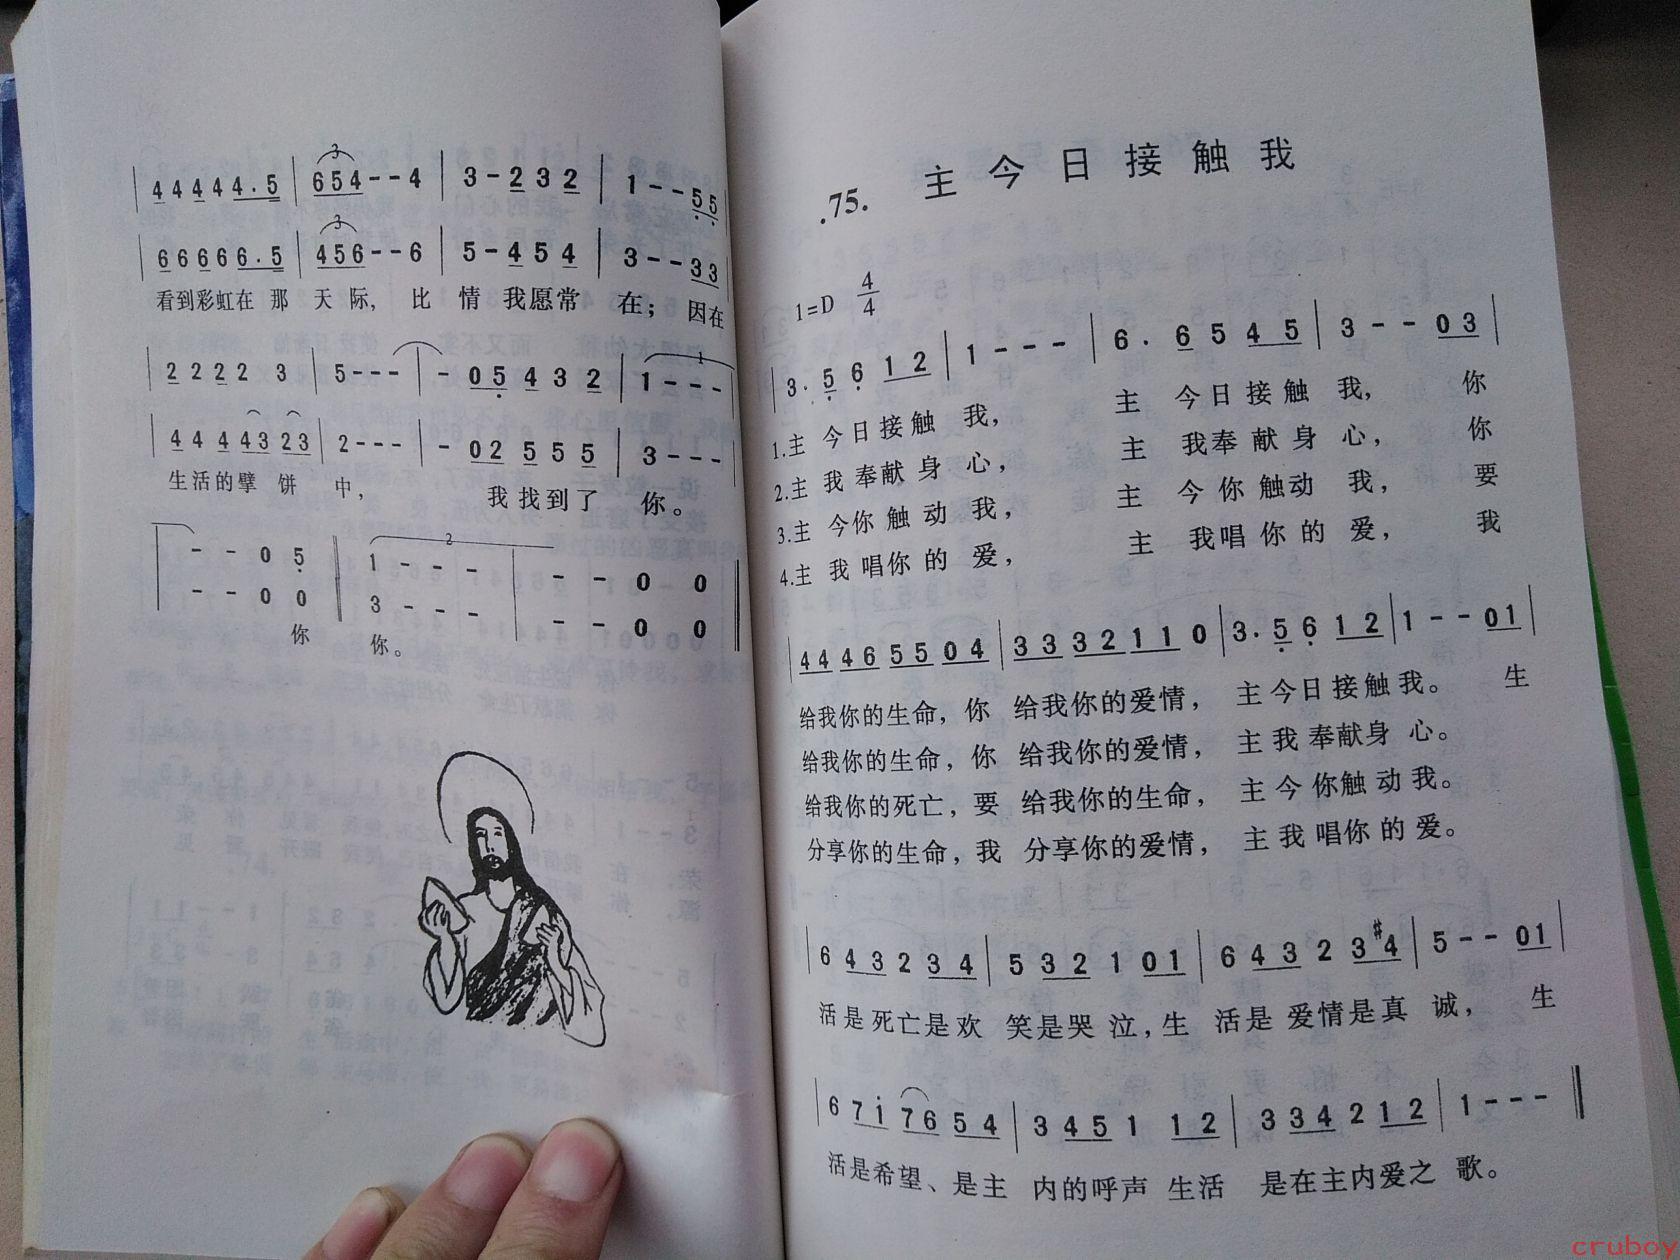 3
4 4 4 4 4 . 5 | 6 5 4 - - 4 | 3 - 2 3 2 | 1 - - 5 5
3
6 6 6 6 6 . 5 | 4 5 6 - - 6 | 5 - 4 5 4 | 3 - - 3 3
看到彩虹在 那 天 际, 比 情 我愿常 在; 因在
1
2 2 2 2 3 | 5 - - - | - 0 5 4 3 2 | 1 - - -
4 4 4 4 3 2 3 | 2 - - - | - 0 2 5 5 5 | 3 - - -
生活的擘 饼 中, 我找到了 你。
2
- - 0 5 | 1 - - - | - - 0 0
- - 0 0 | 3 - - - | - - 0 0
你 你。
.75. 主今日接触我
1=D 4/4
3 . 5 6 1 2 | 1 - - - | 6 . 6 5 4 5 | 3 - - 0 3
1.主 今日接触 我, 主 今日接触 我, 你
2.主 我奉献身 心, 主 我奉献身 心, 你
3.主 今你触动 我, 主 今你触动 我, 要
4.主 我唱你的 爱, 主 我唱你的 爱, 我
4 4 4 6 5 5 0 4 | 3 3 3 2 1 1 0 | 3 . 5 6 1 2 | 1 - - 0 1
给我你的生命, 你 给我你的爱情, 主今日接触我。 生
给我你的生命, 你 给我你的爱情, 主我奉献身 心。
给我你的死亡, 要 给我你的生命, 主今你触动我。
分享你的生命, 我 分享你的爱情, 主我唱你的爱。
6 4 3 2 3 4 | 5 3 2 1 0 1 | 6 4 3 2 3 #4 | 5 - - 0 1
活是死亡是欢 笑是哭泣, 生 活是爱情是真 诚, 生
6 7 i 7 6 5 4 | 3 4 5 1 1 2 | 3 3 4 2 1 2 | 1 - - -
活是希望、是主 内的呼声 生活 是在主内爱之 歌。
cruboy